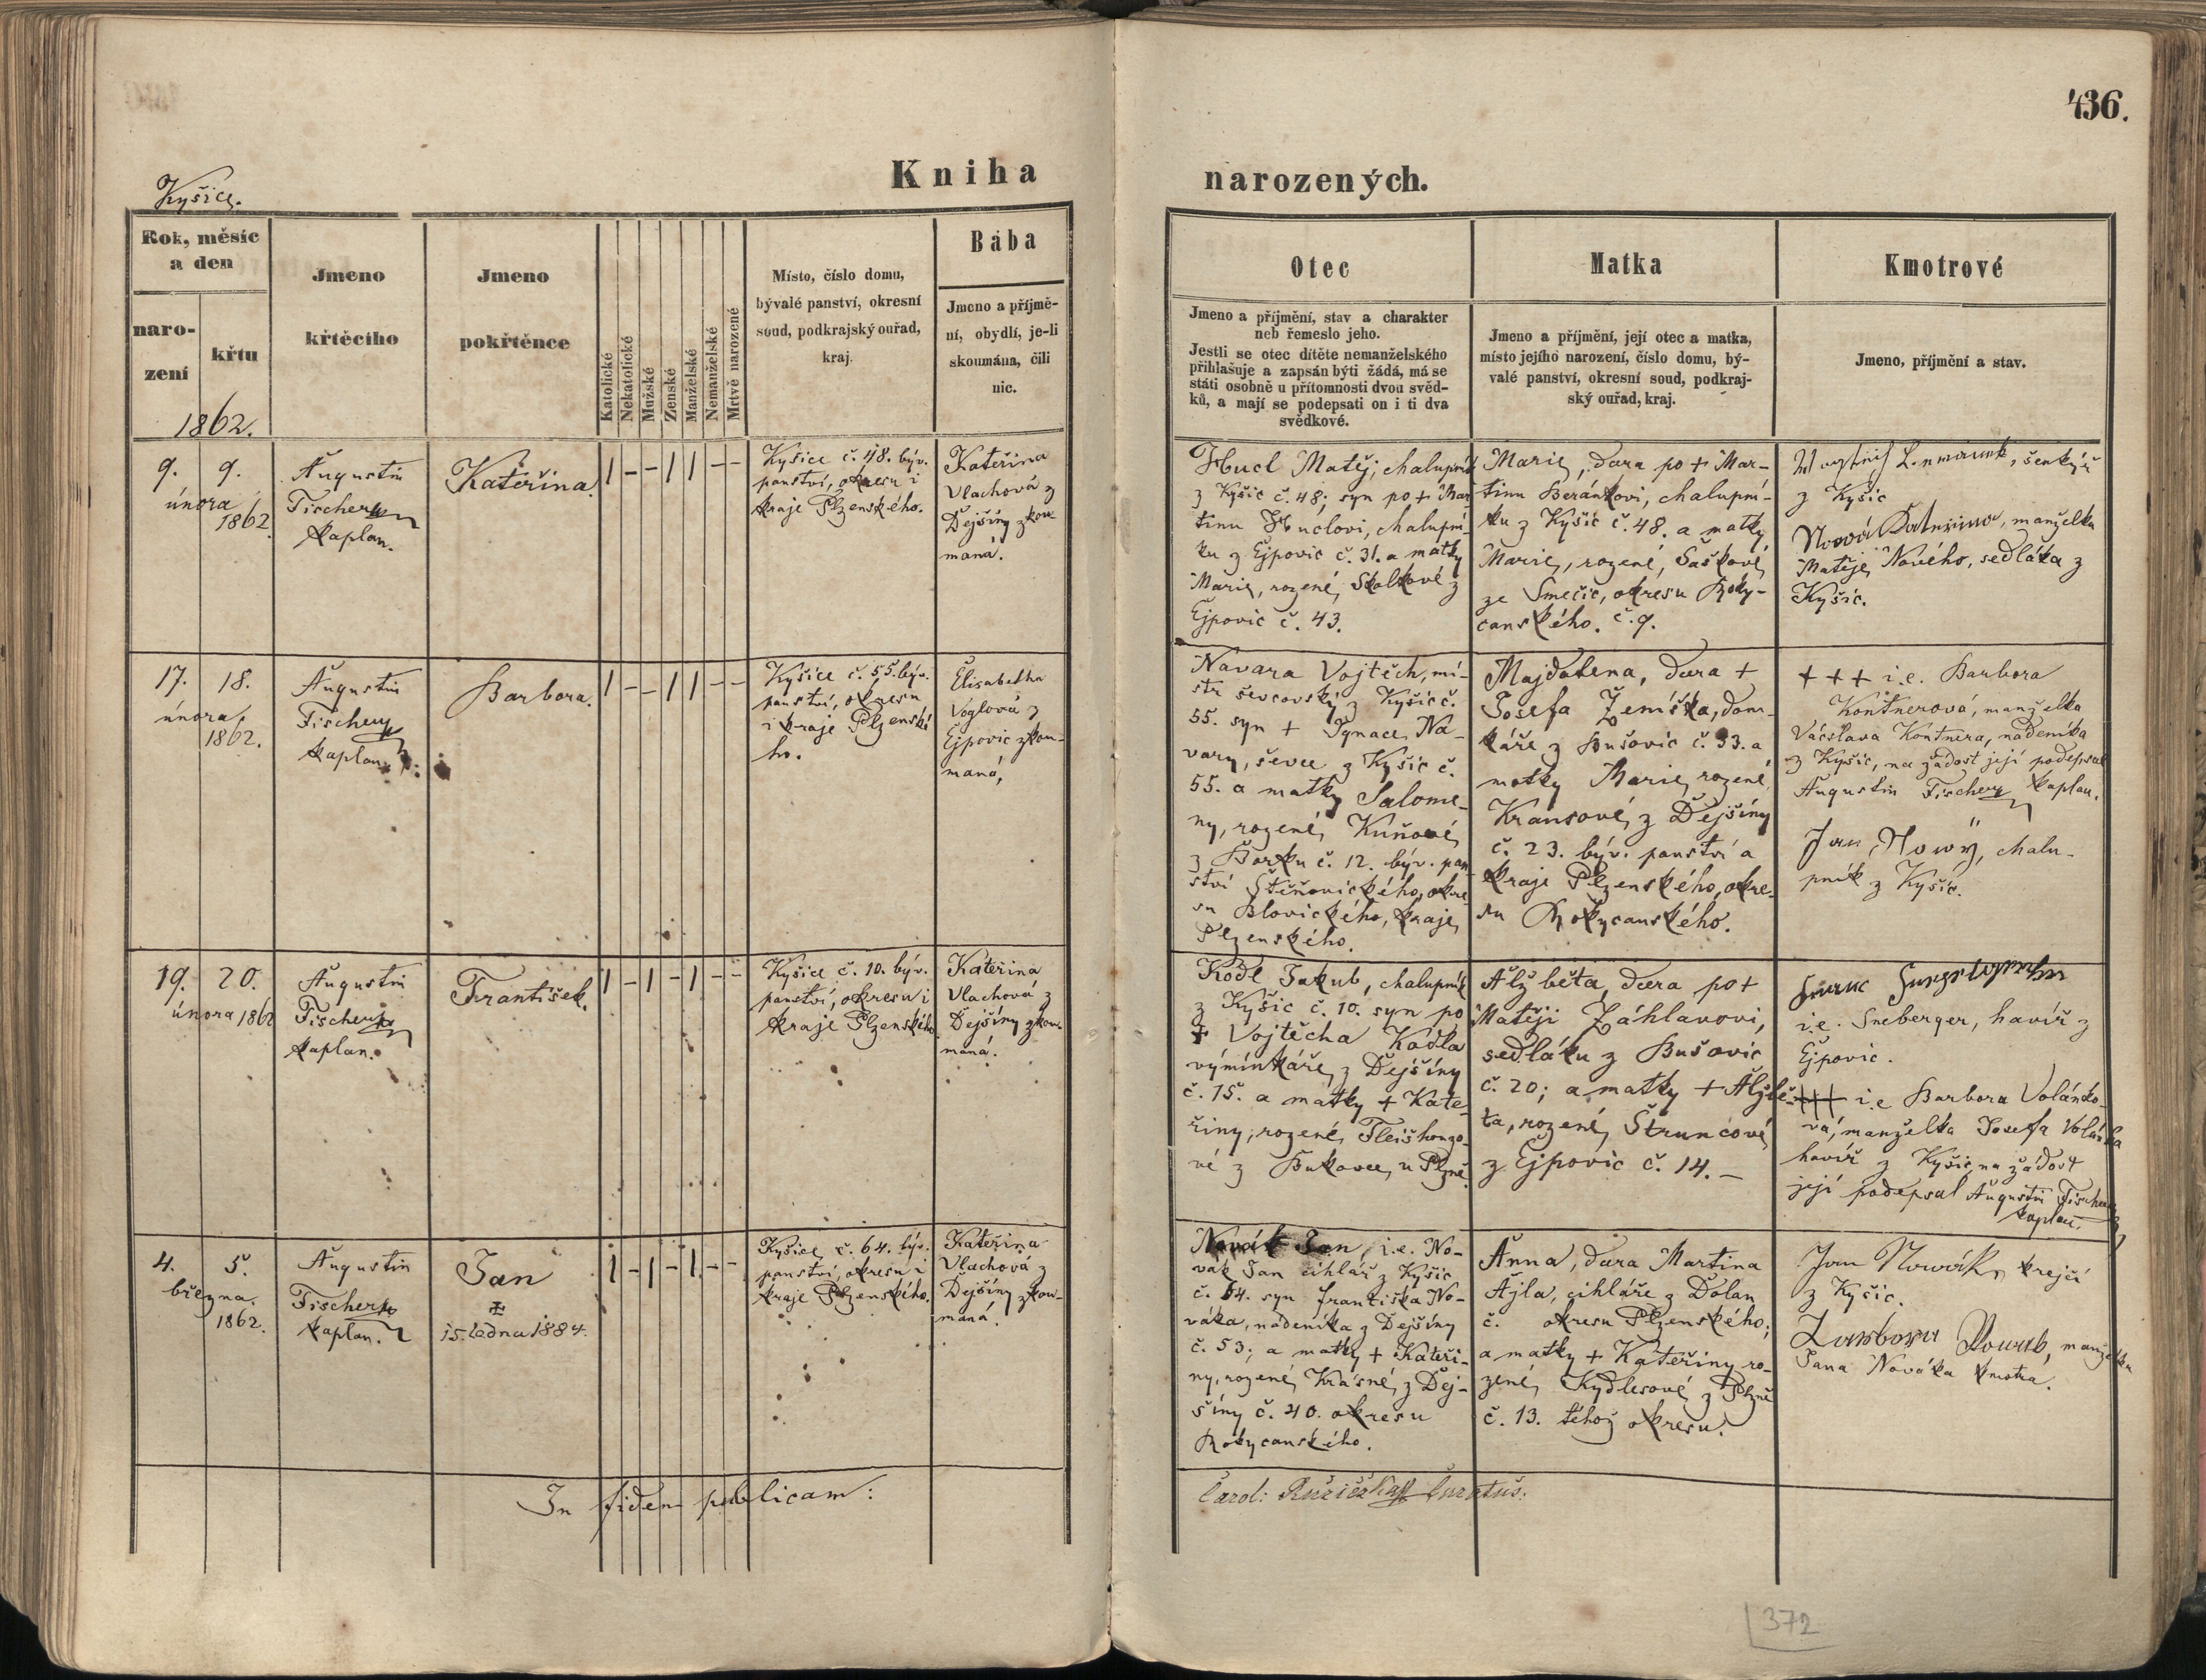 436.
Kniha narozených.
Kyšice.
Rok, měsíc
a den
naro-
zení
křtu
1862.
Jmeno
křtěcího
Jmeno
pokřtěnce
Katolické
Nekatolické
Mužské
Zenské
Manželské
Nemanželské
Mrtvě narozené
Místo, číslo domu,
bývalé panství, okresní
soud, podkrajský ouřad,
kraj.
Bába
Jmeno a příjmě-
ní, obydlí, je-li
skoumána, čili
nic.
Otec
Jmeno a příjmění, stav a charakter
neb řemeslo jeho.
Jestli se otec dítěte nemanželského
přihlašuje a zapsán býti žádá, má se
státi osobně u přítomnosti dvou svěd-
ků, a mají se podepsati on i ti dva
svědkové.
Matka
Jmeno a příjmění, její otec a matka,
místo jejího narození, číslo domu, bý-
valé panství, okresní soud, podkraj-
ský ouřad, kraj.
Kmotrové
Jmeno, příjmění a stav.
9. 9.
února
1862
Augustin
Fischer
kaplan.
Kateřina.
1 - - 1 1 - -
Kyšice č. 48. býv.
panství, okresu i
kraje Plzenského.
Kateřina
Vlachová z
Dejšíny zkou-
maná.
Hucl Matěj, chalupník
z Kyšic č. 48; syn po + Mar
tinu Huclovi, chalupní-
ku z Ejpovic č. 31. a matky
Marie, rozené, Skalkové z
Ejpovic č. 43.
Marie, dcera po + Mar-
tinu Beránkovi, chalupní-
ku z Kyšic č. 48. a matky
Marie, rozené, Šaškové,
ze Smečic, okresu Roky-
canského. č. 9.
šenkýř
z Kyšic
Nová Katerina, manželka
Matěje Nového, sedláka z
Kyšic.
17. 18.
února
1862.
Augustin
Fischer
kaplan.
Barbora.
1 - - 1 1 - -
Kyšice č. 55. býv.
panství, okresu
i kraje Plzenské
ho.
Elisabetha
Voglová z
Ejpovic zkou-
maná,
Navara Vojtěch, mi-
str ševcovský z Kyšic č.
55. syn + Ignace Na-
vary, ševce z Kyšic č.
55. a matky Salome-
ny, rozené, Kuňové,
z Borku č. 12. býv. pan
ství Štěňovického, okre-
su Blovického, kraje
Plzenského.
Majdalena, dcera +
Josefa Žemíška, dom-
káře z Bušovic č. 33. a
matky Marie, rozené,
Kransové, z Dejšíny
č. 23. býv. panství a
kraje Plzenského, okre-
su Rokycanského.
+ + + i. e. Barbora
Kontnerová, manželka
Václava Kontnera, nádeníka
z Kyšic, na žádost její podepsal
Augustin Fischer kaplan.
Jan Nowý, chalu-
pník z Kyšic.
19. 20.
února 1862
Augustin
Fischer
kaplan.
František.
1 - 1 - 1 - -
Kyšice č. 10. býv.
panství, okresu i
kraje Plzenského
Kateřina
Vlachová z
Dejšíny zkou-
maná.
Kodl Jakub, chalupník
z Kyšic č. 10. syn po
+ Vojtěcha Kodla
výminkáře, z Dejšíny
č. 15. a matky + Kate-
řiny, rozené,
vé z Bukovce u Plzně
Alžběta, dcera po +
Matěji Záhlavovi,
sedláku z Bušovic
č. 20; a matky + Alžbě-
ta, rozené, Štruncové,
z Ejpovic č. 14. -
i. e. Sneberger, havíř z
Ejpovic.
+++ i. e Barbora Volánko-
vá, manželka Josefa Volánka
havíř z Kyšic, na žádost
její podepsal Augustin Fischer
kaplan.
4. 5.
března.
1862.
Augustin
Fischer
kaplan.
Jan
15. ledna 1884.
1 - 1 - 1 - -
Kyšice, č. 64. býv.
panství, okresu i
kraje Plzenského.
Kateřina
Vlachová z
Dejšíny zkou-
maná.
Novák Jan, i. e. No-
vák Jan cihlář z Kyšic
č. 64. syn Františka No-
váka, nádeníka z Dejšíny
č. 53; a matky + Kateři-
ny, rozené, Krásné, z Dej-
šíny č. 40. okresu
Rokycanského.
Anna, dcera Martina
Ajla, cihláře z Dolan
č. okresu Plzenského;
a matky + Kateřiny ro-
zené, Kydlesové z Plzně
č. 13. téhož okresu.
Jan Nowák, krejčí
z Kyšic.
Nowak, manželka
Jana Nováka kmotra.
In fidem publicam:
Carol: Růžička Curatus.
372